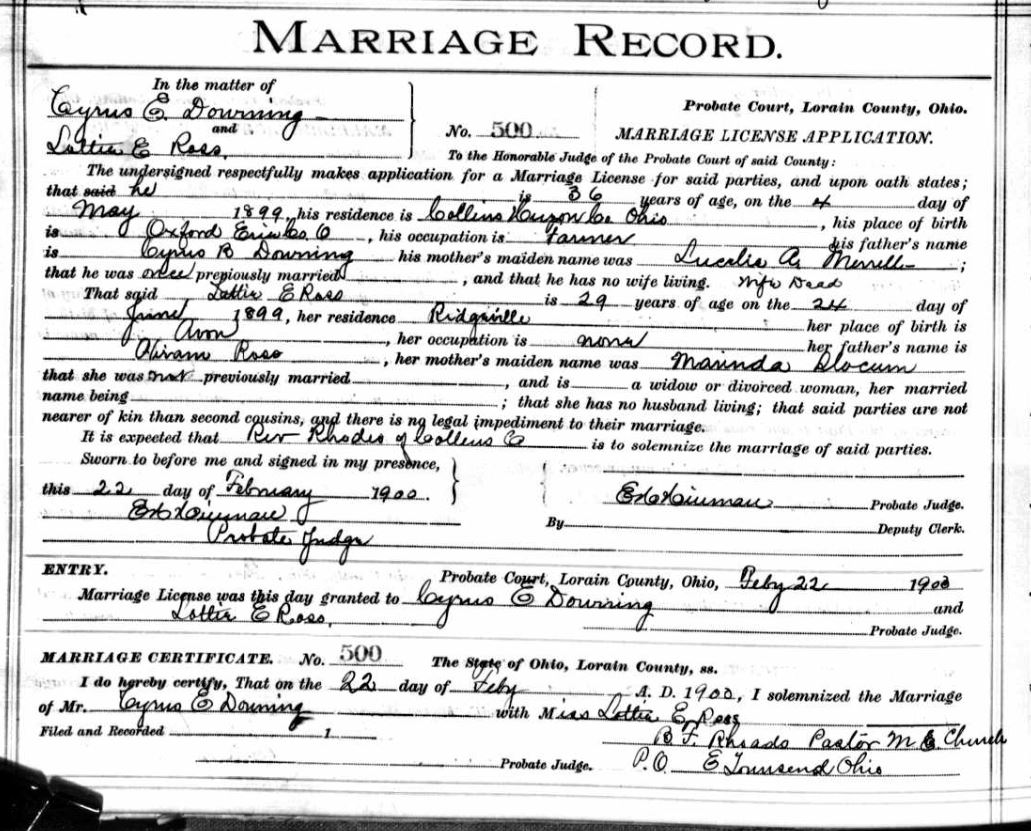 MARRIAGE RECORD.
In the matter of
Cyrus E. Downing
and
Lottie E Ross.
Probate Court, Lorain County, Ohio.
No. 500
MARRIAGE LICENSE APPLICATION.
To the Honorable Judge of the Probate Court of said County:
The undersigned respectfully makes application for a Marriage License for said parties, and upon oath states;
that said he is 36 years of age, on the 4 day of
May 1899, his residence is Collins Huron Co Ohio, his place of birth
is Oxford Erie Co O, his occupation is Farmer his father's name
is Cyrus B Downing his mother's maiden name was A. Merrell;
that he was once previously married, and that he has no wife living. Wife Dead
That said Lottie E Ross is 29 years of age on the 24 day of
June 1899, her residence Ridgeville her place of birth is
Avon, her occupation is none her father's name is
Hiram Ross, her mother's maiden name was Marinda Slocum
that she was not previously married, and is a widow or divorced woman, her married
name being ; that she has no husband living; that said parties are not
nearer of kin than second cousins, and there is no legal impediment to their marriage.
It is expected that Rev Rhodes of Collens O is to solemnize the marriage of said parties.
Sworn to before me and signed in my presence,
this 22 day of February 1900.
Probate Judge.
By Deputy Clerk.
Probate Judge
ENTRY.
Probate Court, Lorain County, Ohio, Feby 22 1900
Marriage License was this day granted to Cyrus E Downing and
Lottie E Ross.
Probate Judge.
MARRIAGE CERTIFICATE. No. 500 The State of Ohio, Lorain County, ss.
I do hereby certify, That on the 22 day of Feby A. D. 1900, I solemnized the Marriage
of Mr. Cyrus E Downing with Miss Lottie E. Ross
Filed and Recorded 1
B F. Rhoads Pastor M E Church
Probate Judge. P.O. E Townsend Ohio